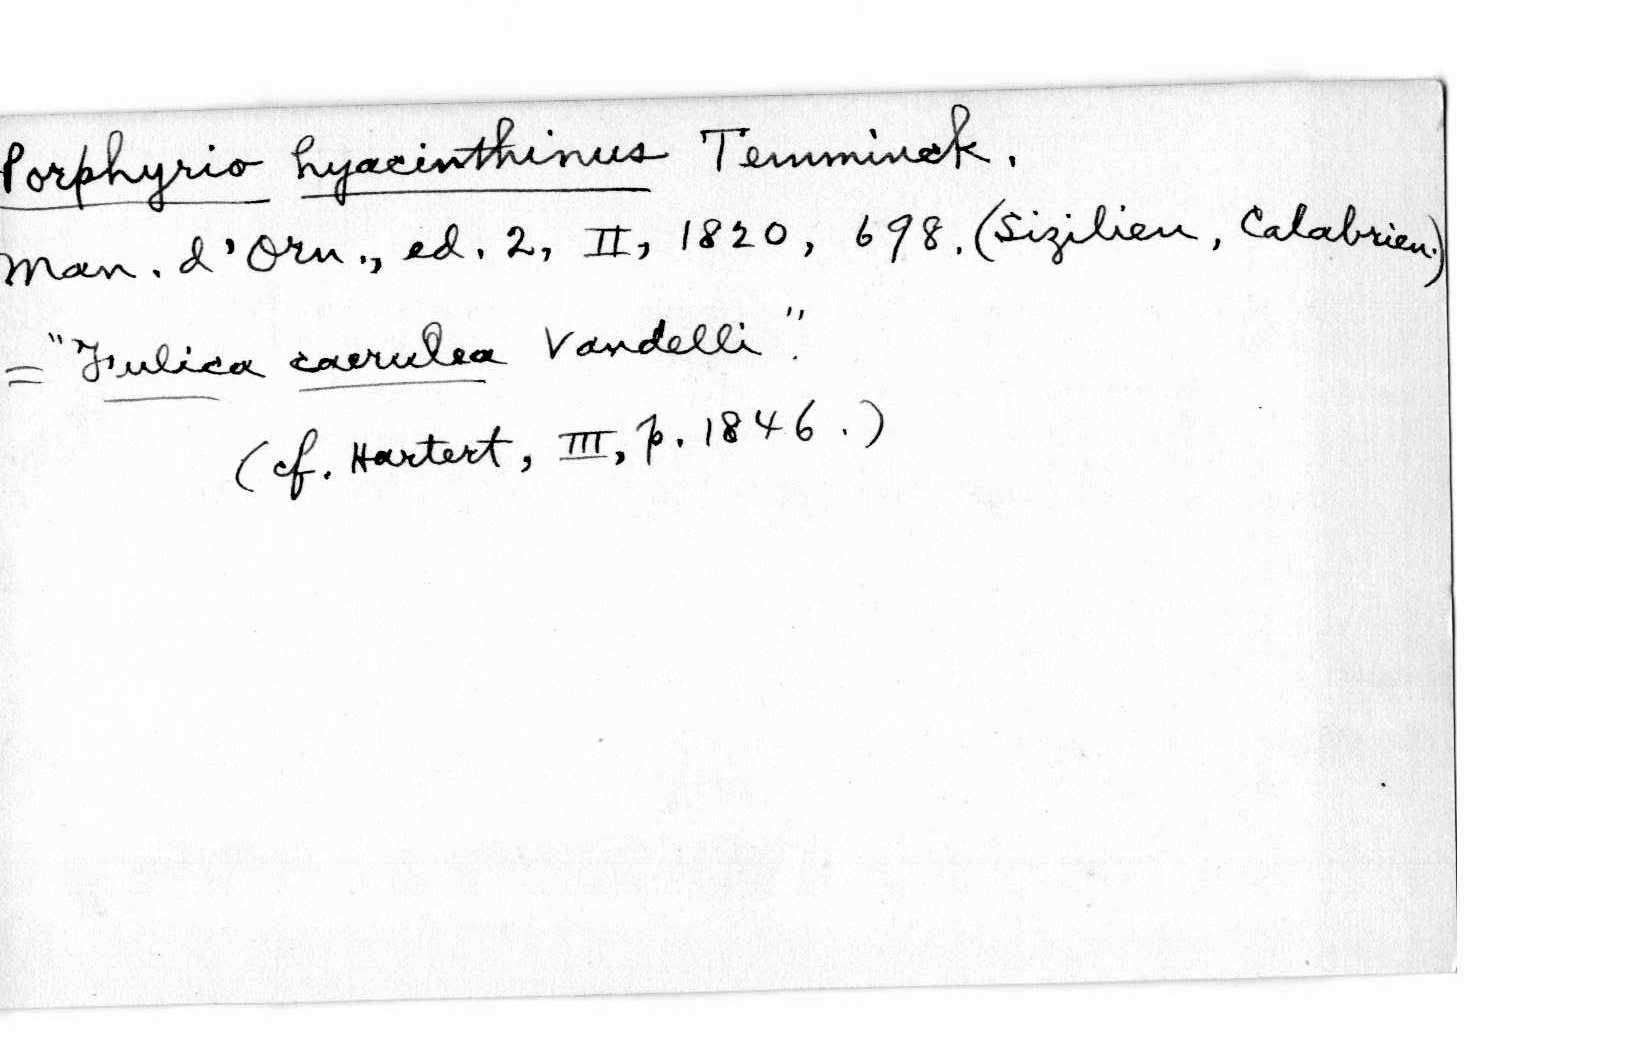 Porphyrio hyacinthinus Temminck.
Man. d'Orn., ed. 2, II, 1820, 698. (Sizilien, Calabrien.)
= "Fulica caerulea Vandelli".
(cf. Hartert, III, p. 1846.)